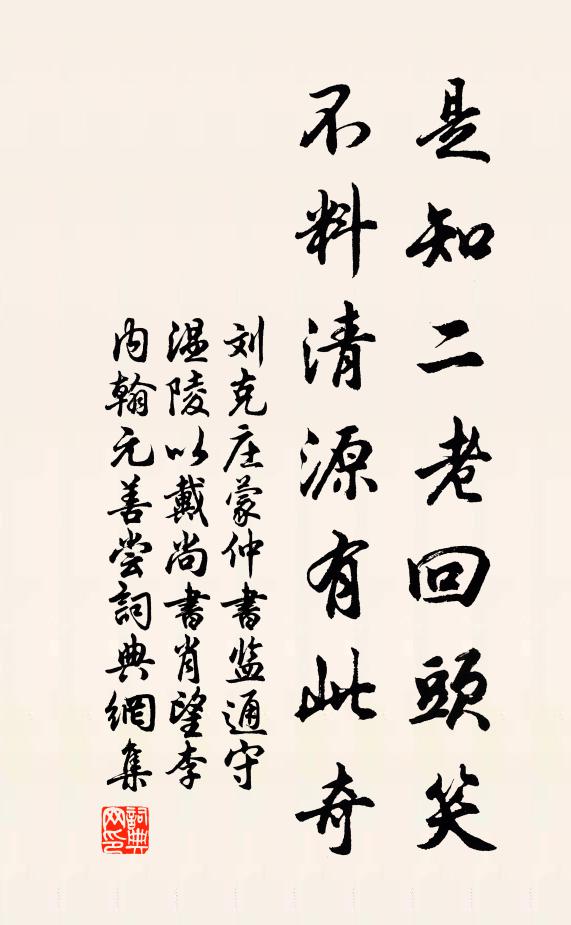 是知二老回頭笑
不料清源有此奇
刘克庄蒙仲書监通守
温陵以戴尚書肖望李
内翰元善尝詞典網集
詞典网印